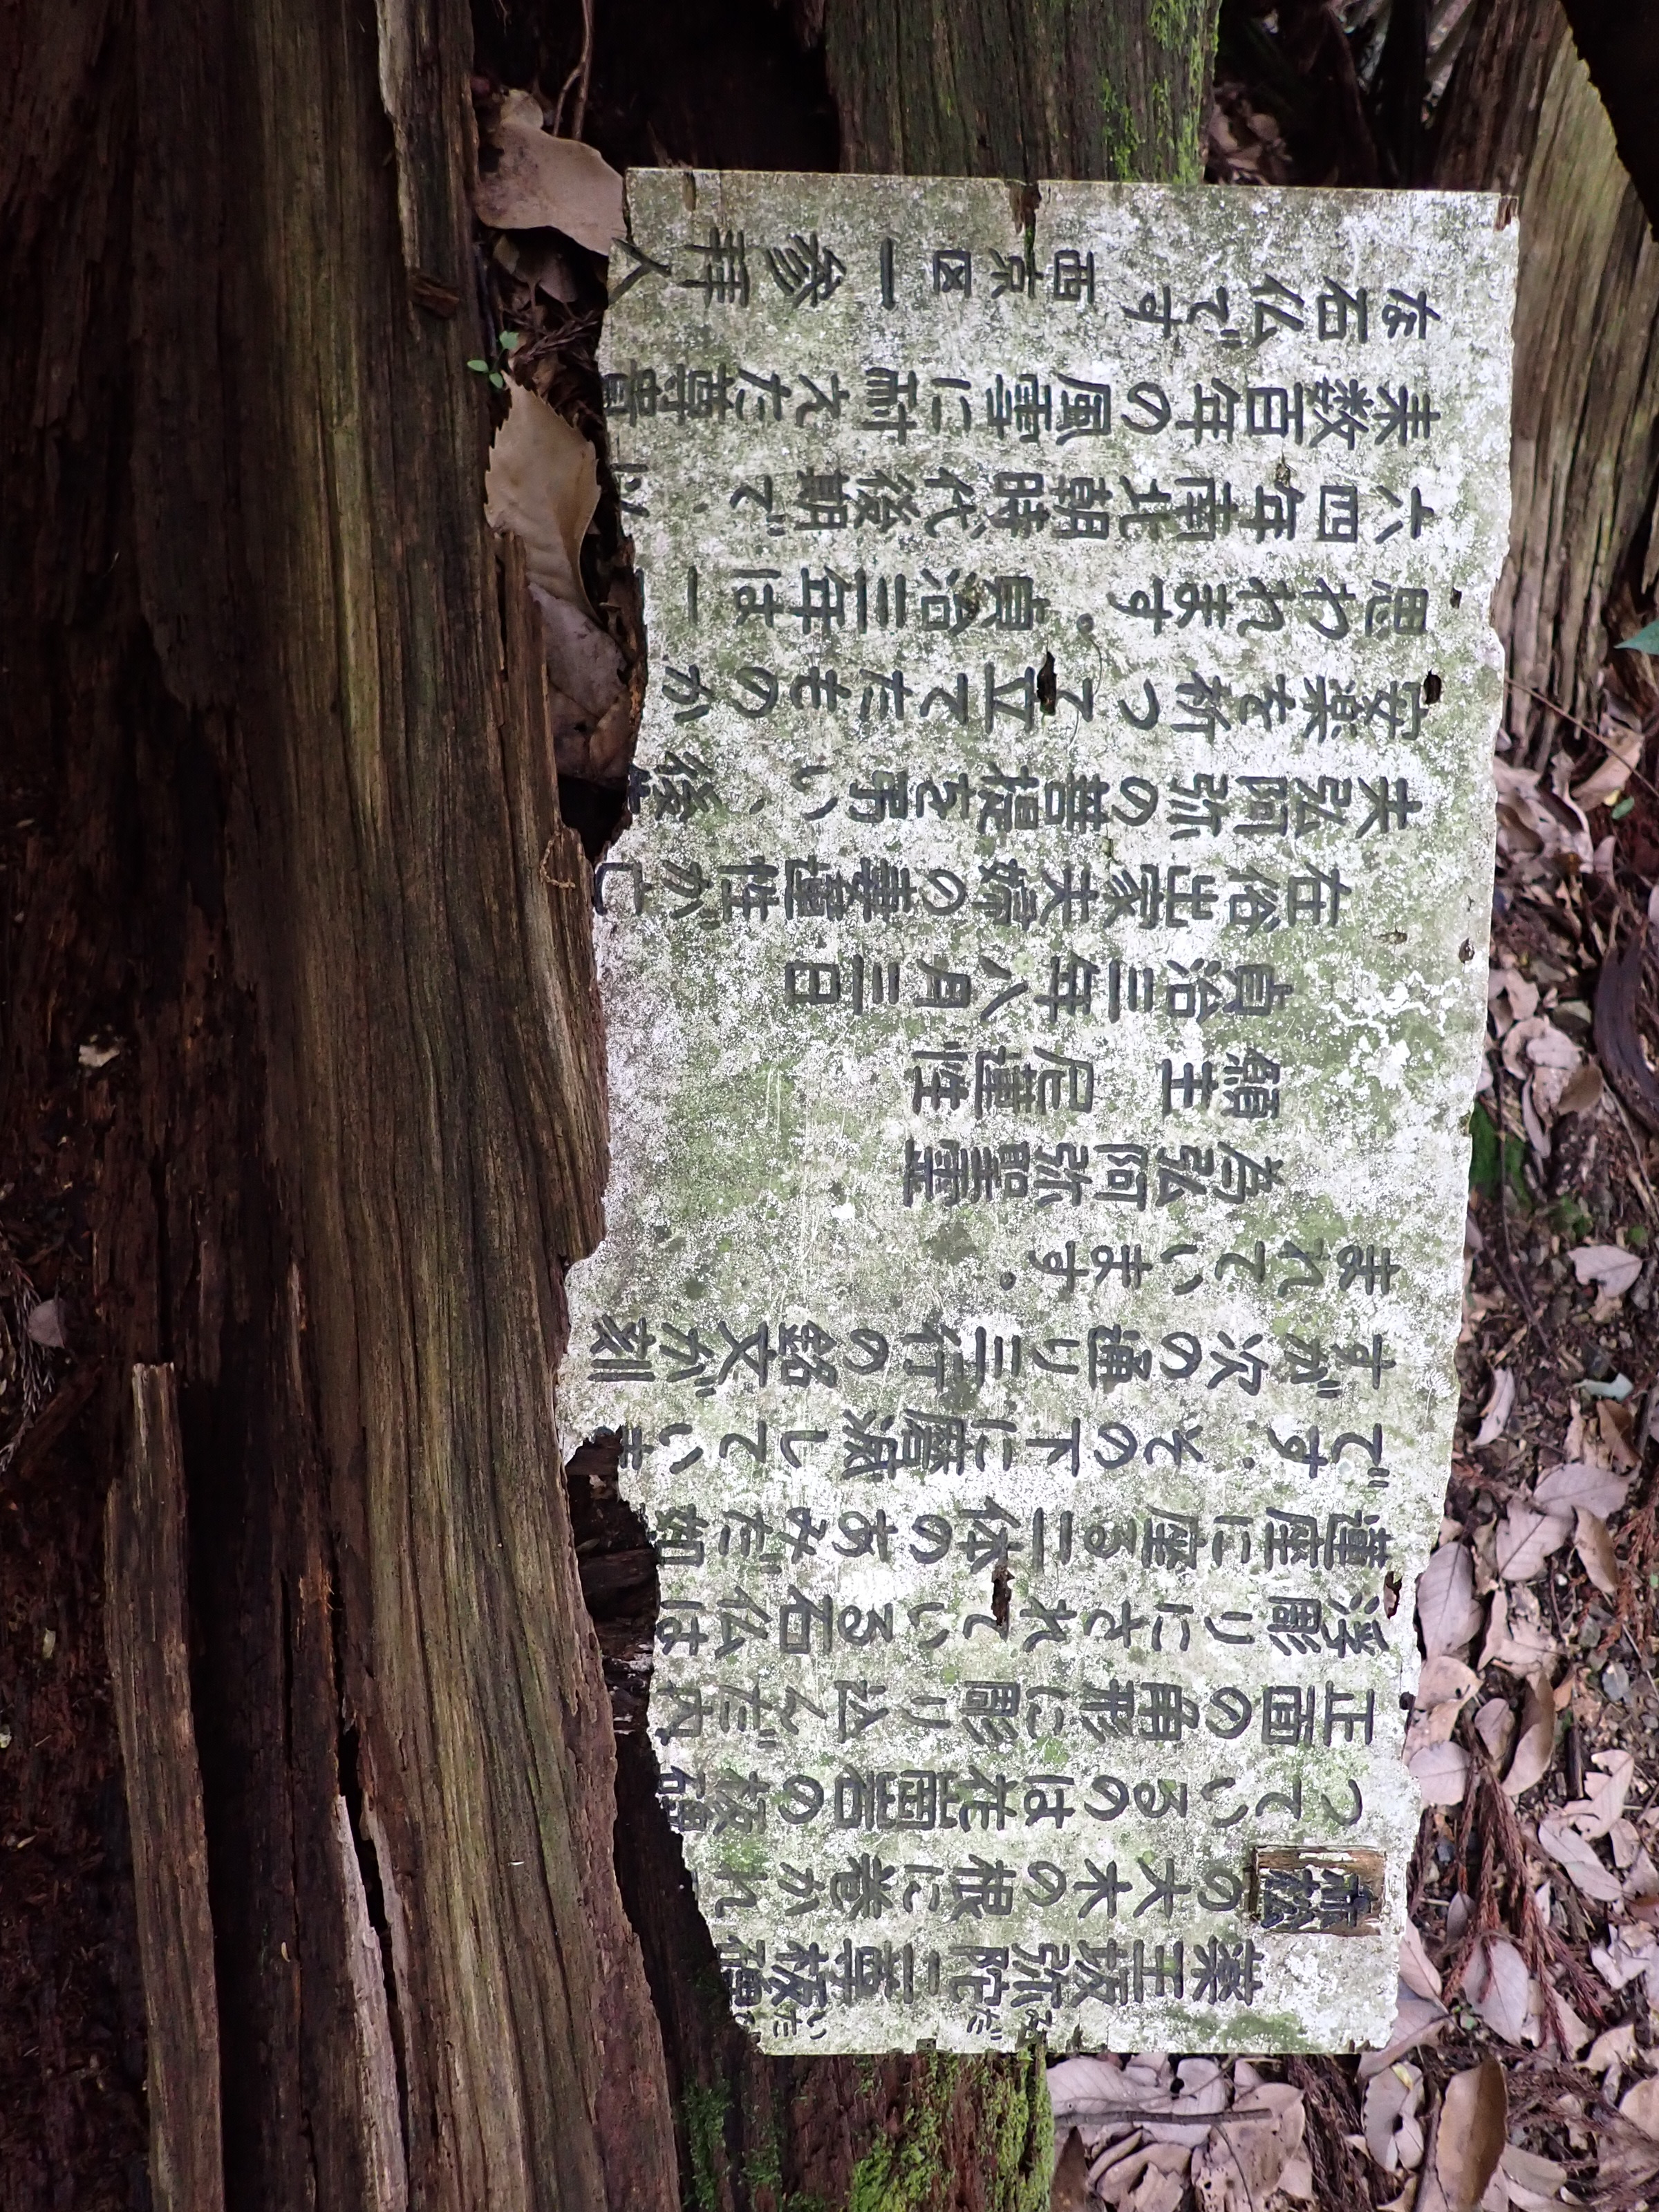 みだ いた
薬王坂弥陀二尊板碑
赤松の大木の根に巻かれ
っているのは花崗岩の板碑
正面の角形に彫り込んだ内
浮彫りにされている石仏は
蓮座に座る二体のあみだ如
です。その下に磨滅していま
すが次の通り三行の銘文が刻
まれています。
為弘阿弥聖霊
願主 尼蓮性
貞治三年八月三日
在俗出家夫婦の妻蓮性が亡
夫弘阿弥の菩提を弔い、後
安楽を祈って立てたものか
思われます。貞治三年は一
六四年南北朝時代後期で、以
来数百年の風雪に耐えた尊貴
な石仏です 西京区一参拝人